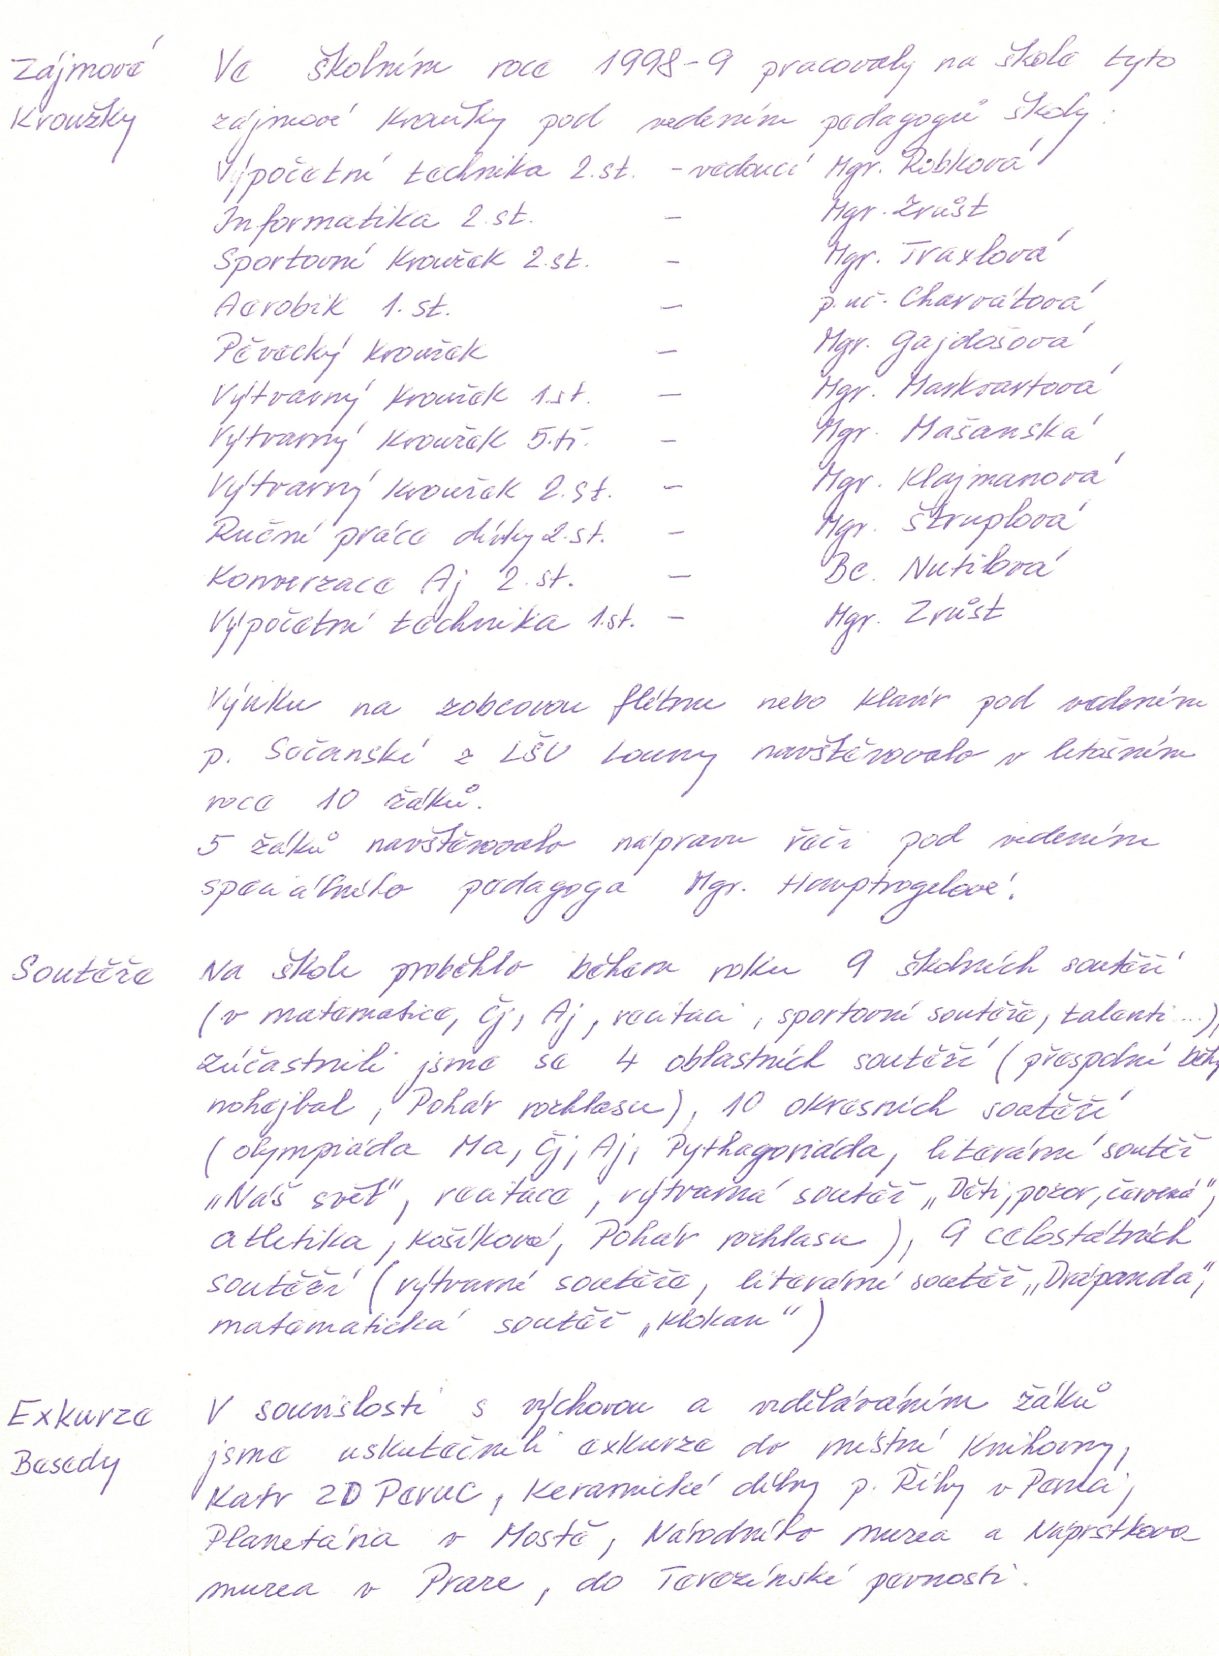 Zájmové
Kroužky
Ve školním roce 1998-9 pracovaly na škole tyto
zájmové kroužky pod vedením pedagogů školy:
Výpočetní technika 2.st. - vedoucí Mgr. Robková
Informatika 2.st. - Mgr. Zrůst
Sportovní kroužek 2.st. - Mgr. Traxlová
Aerobik 1.st. - p.uč. Charvátová
Pěvecký kroužek - Mgr. Gajdošová
Výtvarný kroužek 1.st. - Mgr. Markvartová
Výtvarný kroužek 5.tř. - Mgr. Mašanská
Výtvarný kroužek 2.st. - Mgr. Klajmanová
Ruční práce dívky 2.st. - Mgr. Štruplová
Konverzace Aj 2.st. - Bc. Nutilová
Výpočetní technika 1.st. - Mgr. Zrůst
Výuku na zobcovou flétnu nebo klavír pod vedením
p. Sočanské z LŠU Louny navštěvovalo v letošním
roce 10 žáků.
5 žáků navštěvovalo nápravu řeči pod vedením
speciálního pedagoga Mgr. Hauptvogelové.
Soutěže
Na škole proběhlo během roku 9 školních soutěží
(v matematice, Čj, Aj, recitaci, sportovní soutěže, talenti...),
zúčastnili jsme se 4 oblastních soutěží (přespolní běhy
nohejbal, Pohár rozhlasu), 10 okresních soutěží
(olympiáda Ma, Čj, Aj, Pythagoriáda, literární soutěž
„Náš svět", recitace, výtvarná soutěž „Děti, pozor, červená",
atletika, košíková, Pohár rozhlasu), 9 celostátních
soutěží (výtvarné soutěže, literární soutěž „Drápanda",
matematická soutěž „Klokan")
Exkurze
Besedy
V souvislosti s výchovou a vzděláváním žáků
jsme uskutečnili exkurze do místní knihovny,
Katr ZD Peruc, keramické dílny p. Říhy v Peruci,
Planetária v Mostě, Národního muzea a Náprstkova
muzea v Praze, do Terezínské pevnosti.